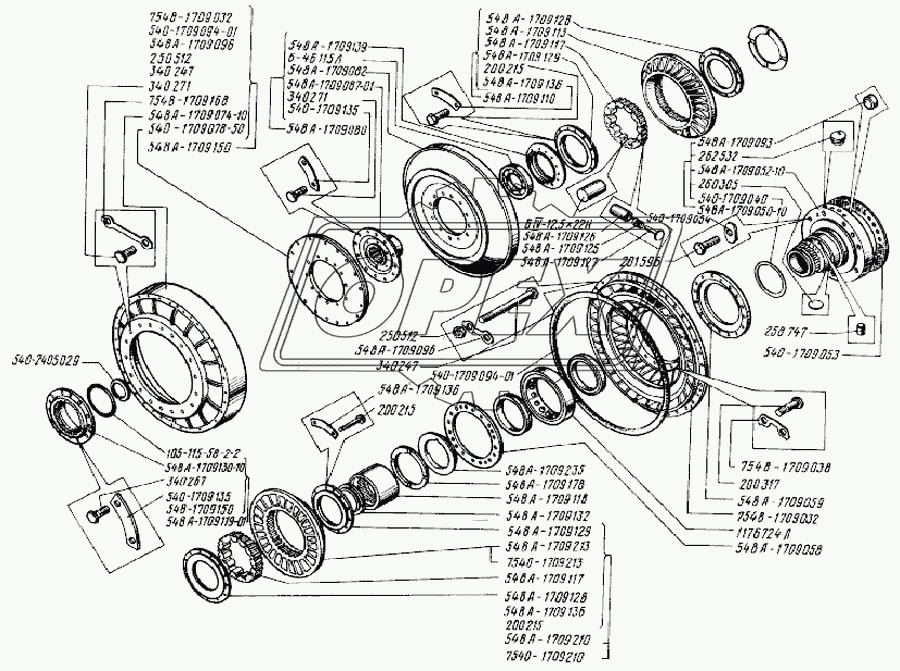 7548-1709032
540-1709094-01
548А-1709096
250512
340247
340271
7548-1709168
548А-1709074-10
540-1709078-50
548А-1709150
548А-1709139
6-46115Л
548А-1709082
548А-1709087-01
340271
540-1709135
548А-1709080
548А-1709128
548А-1709113
548А-1709117
548А-1709129
200215
548А-1709136
548А-1709110
548А-1709093
262532
548А-1709052-10
260305
540-1709040
548А-1709050-10
540-1709054
548А-1709126
548А-1709125
548А-1709127
201596
250512
548А-1709096
340247
540-1709094-01
548А-1709136
200215
258747
540-1709053
540-2405029
105-115-58-2-2
548А-1709130-10
340267
540-1709135
548-1709150
548А-1709119-01
7548-1709038
200317
548А-1709059
7548-1709032
1176724Л
548А-1709058
548А-1709235
548А-1709178
548А-1709118
548А-1709132
548А-1709129
548А-1709213
7540-1709213
548А-1709117
548А-1709128
548А-1709136
200215
548А-1709210
7540-1709210
ОРЕХ